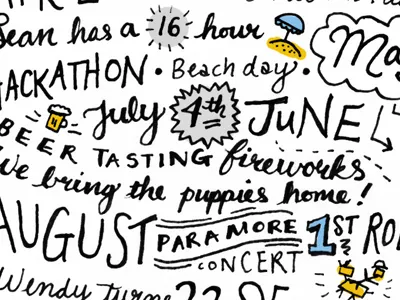 Sean has a 16 hour
HACKATHON • Beach day •
July 4th JUNE
BEER TASTING fireworks
We bring the puppies home!
AUGUST PARAMORE CONCERT 1ST
Wendy turns